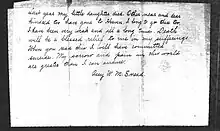 last year my little daughter died. Other near and dear
friends too have gone to Heaven. I long to go there too.
I have been very weak and ill a long time. Death
will be a blessed relief to me in my sufferings.
When you read this I will have committed
suicide. My sorrow and pain in this world
are greater than I can endure.
Amy W. M.